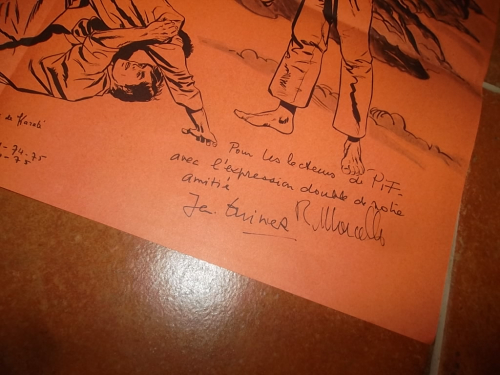 de Karaté
- 74-75
- 75
Pour les lecteurs de PIF-
avec l'expression double de notre
amitié
R. Marcello